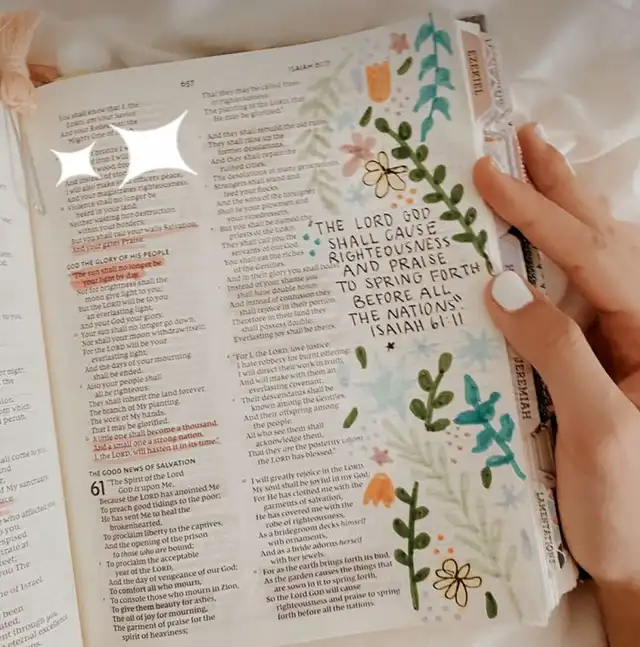 657
ISAIAH 61:11
You shall know that I, the
LORD, am your Savior
And your Redeemer, the
Mighty One of
bronze I
iron I will
wood,
of stones
I will also make officers peace,
And your magistrates righteousness.
Violence shall no longer be
heard in your land,
Neither wasting nor destruction
within your borders;
But you shall call your walls Salvation,
And your gates Praise.
GOD THE GLORY OF HIS PEOPLE
"The sun shall no longer be
your light by day,
Nor for brightness shall the
moon give light to you;
But the LORD will be to you
an everlasting light,
And your God your glory.
Your sun shall no longer go down,
Nor shall your moon withdraw itself;
For the LORD will be your
everlasting light,
And the days of your mourning
shall be ended.
Also your people shall
all be righteous;
They shall inherit the land forever,
The branch of My planting,
The work of My hands,
That I may be glorified.
A little one shall become a thousand,
And a small one a strong nation.
I, the LORD, will hasten it in its time."
THE GOOD NEWS OF SALVATION
61 "The Spirit of the Lord
GOD is upon Me,
Because the LORD has anointed Me
To preach good tidings to the poor;
He has sent Me to heal the
brokenhearted,
To proclaim liberty to the captives,
And the opening of the prison
to those who are bound;
To proclaim the acceptable
year of the LORD,
And the day of vengeance of our God;
To comfort all who mourn,
To console those who mourn in Zion,
To give them beauty for ashes,
The oil of joy for mourning,
The garment of praise for the
spirit of heaviness;
That they may be called trees
of righteousness,
The planting of the LORD, that
He may be glorified."
And they shall rebuild the old ruins,
They shall raise up the
former desolations,
And they shall repair the
ruined cities,
The desolations of many generations.
Strangers shall stand and
feed your flocks,
And the sons of the foreigner
Shall be your plowmen and
your vinedressers.
But you shall be named the
priests of the LORD,
They shall call you the
servants of our God.
You shall eat the riches
of the Gentiles,
And in their glory you shall boast.
Instead of your shame you
shall have double honor,
And instead of confusion they
shall rejoice in their portion.
Therefore in their land they
shall possess double;
Everlasting joy shall be theirs.
"For I, the LORD, love justice;
I hate robbery for burnt offering;
I will direct their work in truth,
And will make with them an
everlasting covenant.
Their descendants shall be
known among the Gentiles,
And their offspring among
the people.
All who see them shall
acknowledge them,
That they are the posterity whom
the LORD has blessed."
I will greatly rejoice in the LORD,
My soul shall be joyful in my God;
For He has clothed me with the
garments of salvation,
He has covered me with the
robe of righteousness,
As a bridegroom decks himself
with ornaments,
And as a bride adorns herself
with her jewels.
For as the earth brings forth its bud,
As the garden causes the things that
are sown in it to spring forth,
So the Lord GOD will cause
righteousness and praise to spring
forth before all the nations.
"THE LORD GOD
SHALL CAUSE
RIGHTEOUSNESS
AND PRAISE
TO SPRING FORTH
BEFORE ALL
THE NATIONS."
ISAIAH 61:11
EZEKIEL
JEREMIAH
LAMENTATIONS